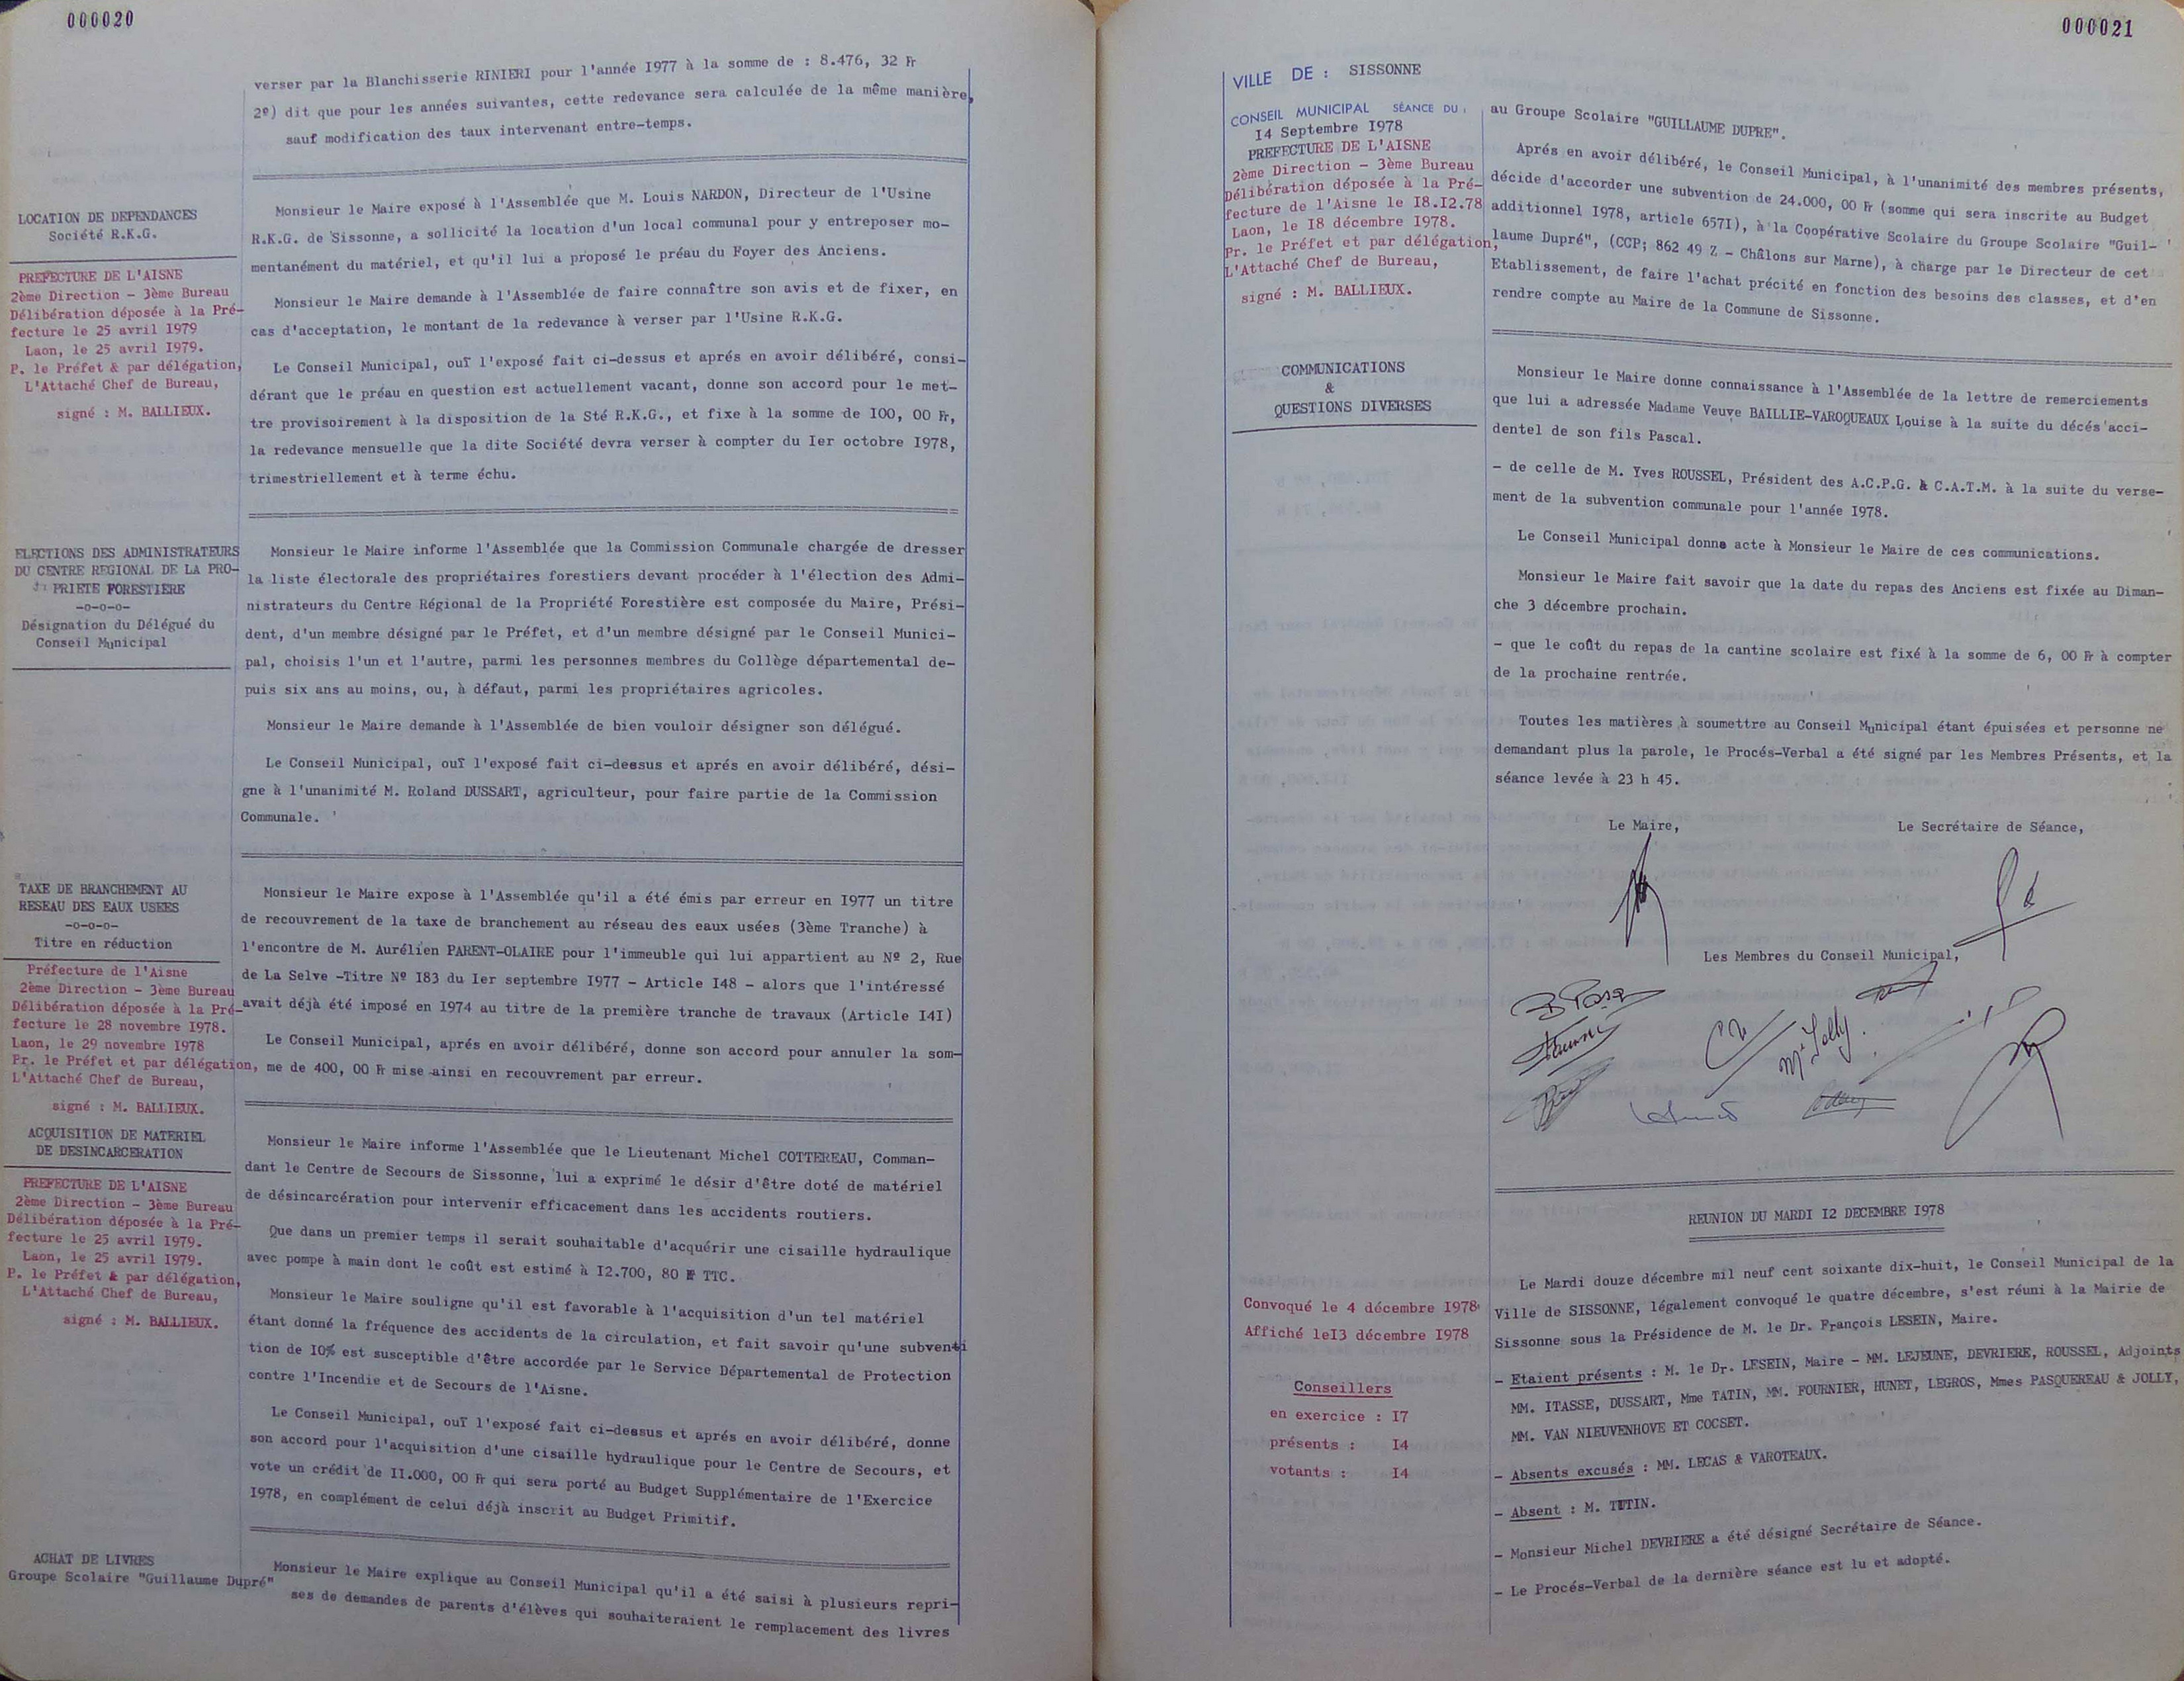 000020
verser par la Blanchisserie RINIERI pour l'année I977 à la somme de : 8.476, 32 Fr
2º) dit que pour les années suivantes, cette redevance sera calculée de la même manière,
sauf modification des taux intervenant entre-temps.
LOCATION DE DEPENDANCES
Société R.K.G.
PREFECTURE DE L'AISNE
2ème Direction - 3ème Bureau
Délibération déposée à la Pré-
fecture le 25 avril I979
Laon, le 25 avril I979.
P. le Préfet & par délégation,
L'Attaché Chef de Bureau,
signé : M. BALLIEUX.
Monsieur le Maire exposé à l'Assemblée que M. Louis NARDON, Directeur de l'Usine
R.K.G. de Sissonne, a sollicité la location d'un local communal pour y entreposer mo-
mentanément du matériel, et qu'il lui a proposé le préau du Foyer des Anciens.
Monsieur le Maire demande à l'Assemblée de faire connaître son avis et de fixer, en
cas d'acceptation, le montant de la redevance à verser par l'Usine R.K.G.
Le Conseil Municipal, ouï l'exposé fait ci-dessus et aprés en avoir délibéré, consi-
dérant que le préau en question est actuellement vacant, donne son accord pour le met-
tre provisoirement à la disposition de la Sté R.K.G., et fixe à la somme de I00, 00 Fr,
la redevance mensuelle que la dite Société devra verser à compter du Ier octobre I978,
trimestriellement et à terme échu.
ELECTIONS DES ADMINISTRATEURS
DU CENTRE REGIONAL DE LA PRO-
PRIETE FORESTIERE
-o-o-o-
Désignation du Délégué du
Conseil Municipal
Monsieur le Maire informe l'Assemblée que la Commission Communale chargée de dresser
la liste électorale des propriétaires forestiers devant procéder à l'élection des Admi-
nistrateurs du Centre Régional de la Propriété Forestière est composée du Maire, Prési-
dent, d'un membre désigné par le Préfet, et d'un membre désigné par le Conseil Munici-
pal, choisis l'un et l'autre, parmi les personnes membres du Collège départemental de-
puis six ans au moins, ou, à défaut, parmi les propriétaires agricoles.
Monsieur le Maire demande à l'Assemblée de bien vouloir désigner son délégué.
Le Conseil Municipal, ouï l'exposé fait ci-dessus et aprés en avoir délibéré, dési-
gne à l'unanimité M. Roland DUSSART, agriculteur, pour faire partie de la Commission
Communale.
TAXE DE BRANCHEMENT AU
RESEAU DES EAUX USEES
-o-o-o-
Titre en réduction
Préfecture de l'Aisne
2ème Direction - 3ème Bureau
Délibération déposée à la Pré-
fecture le 28 novembre I978.
Laon, le 29 novembre I978
Pr. le Préfet et par délégation,
L'Attaché Chef de Bureau,
signé : M. BALLIEUX.
Monsieur le Maire expose à l'Assemblée qu'il a été émis par erreur en I977 un titre
de recouvrement de la taxe de branchement au réseau des eaux usées (3ème Tranche) à
l'encontre de M. Aurélien PARENT-OLAIRE pour l'immeuble qui lui appartient au Nº 2, Rue
de La Selve -Titre Nº I83 du Ier septembre I977 - Article I48 - alors que l'intéressé
avait déjà été imposé en I974 au titre de la première tranche de travaux (Article I4I)
Le Conseil Municipal, aprés en avoir délibéré, donne son accord pour annuler la som-
me de 400, 00 Fr mise ainsi en recouvrement par erreur.
ACQUISITION DE MATERIEL
DE DESINCARCERATION
PREFECTURE DE L'AISNE
2ème Direction - 3ème Bureau
Délibération déposée à la Pré-
fecture le 25 avril I979.
Laon, le 25 avril I979.
P. le Préfet & par délégation,
L'Attaché Chef de Bureau,
signé : M. BALLIEUX.
Monsieur le Maire informe l'Assemblée que le Lieutenant Michel COTTEREAU, Comman-
dant le Centre de Secours de Sissonne, lui a exprimé le désir d'être doté de matériel
de désincarcération pour intervenir efficacement dans les accidents routiers.
Que dans un premier temps il serait souhaitable d'acquérir une cisaille hydraulique
avec pompe à main dont le coût est estimé à I2.700, 80 Fr TTC.
Monsieur le Maire souligne qu'il est favorable à l'acquisition d'un tel matériel
étant donné la fréquence des accidents de la circulation, et fait savoir qu'une subventi
tion de I0% est susceptible d'être accordée par le Service Départemental de Protection
contre l'Incendie et de Secours de l'Aisne.
Le Conseil Municipal, ouï l'exposé fait ci-dessus et aprés en avoir délibéré, donne
son accord pour l'acquisition d'une cisaille hydraulique pour le Centre de Secours, et
vote un crédit de II.000, 00 Fr qui sera porté au Budget Supplémentaire de l'Exercice
I978, en complément de celui déjà inscrit au Budget Primitif.
ACHAT DE LIVRES
Groupe Scolaire "Guillaume Dupré"
Monsieur le Maire explique au Conseil Municipal qu'il a été saisi à plusieurs repri-
ses de demandes de parents d'élèves qui souhaiteraient le remplacement des livres
000021
VILLE DE : SISSONNE
CONSEIL MUNICIPAL SÉANCE DU :
I4 Septembre I978
PREFECTURE DE L'AISNE
2ème Direction - 3ème Bureau
Délibération déposée à la Pré-
fecture de l'Aisne le I8.I2.78
Laon, le I8 décembre I978.
Pr. le Préfet et par délégation,
L'Attaché Chef de Bureau,
signé : M. BALLIEUX.
au Groupe Scolaire "GUILLAUME DUPRE".
Aprés en avoir délibéré, le Conseil Municipal, à l'unanimité des membres présents,
décide d'accorder une subvention de 24.000, 00 Fr (somme qui sera inscrite au Budget
additionnel I978, article 657I), à la Coopérative Scolaire du Groupe Scolaire "Guil-
laume Dupré", (CCP; 862 49 Z - Châlons sur Marne), à charge par le Directeur de cet
Etablissement, de faire l'achat précité en fonction des besoins des classes, et d'en
rendre compte au Maire de la Commune de Sissonne.
COMMUNICATIONS
&
QUESTIONS DIVERSES
Monsieur le Maire donne connaissance à l'Assemblée de la lettre de remerciements
que lui a adressée Madame Veuve BAILLIE-VAROQUEAUX Louise à la suite du décés acci-
dentel de son fils Pascal.
- de celle de M. Yves ROUSSEL, Président des A.C.P.G. & C.A.T.M. à la suite du verse-
ment de la subvention communale pour l'année I978.
Le Conseil Municipal donne acte à Monsieur le Maire de ces communications.
Monsieur le Maire fait savoir que la date du repas des Anciens est fixée au Diman-
che 3 décembre prochain.
- que le coût du repas de la cantine scolaire est fixé à la somme de 6, 00 Fr à compter
de la prochaine rentrée.
Toutes les matières à soumettre au Conseil Municipal étant épuisées et personne ne
demandant plus la parole, le Procés-Verbal a été signé par les Membres Présents, et la
séance levée à 23 h 45.
Le Maire,
Le Secrétaire de Séance,
Les Membres du Conseil Municipal,
Mme Jolly.
REUNION DU MARDI I2 DECEMBRE I978
Convoqué le 4 décembre I978
Affiché leI3 décembre I978
Conseillers
en exercice : I7
présents : I4
votants : I4
Le Mardi douze décembre mil neuf cent soixante dix-huit, le Conseil Municipal de la
Ville de SISSONNE, légalement convoqué le quatre décembre, s'est réuni à la Mairie de
Sissonne sous la Présidence de M. le Dr. François LESEIN, Maire.
- Etaient présents : M. le Dr. LESEIN, Maire - MM. LEJEUNE, DEVRIERE, ROUSSEL, Adjoints
MM. ITASSE, DUSSART, Mme TATIN, MM. FOURNIER, HUNET, LEGROS, Mmes PASQUEREAU & JOLLY,
MM. VAN NIEUVENHOVE ET COCSET.
- Absents excusés : MM. LECAS & VAROTEAUX.
- Absent : M. TUTIN.
- Monsieur Michel DEVRIERE a été désigné Secrétaire de Séance.
- Le Procés-Verbal de la dernière séance est lu et adopté.